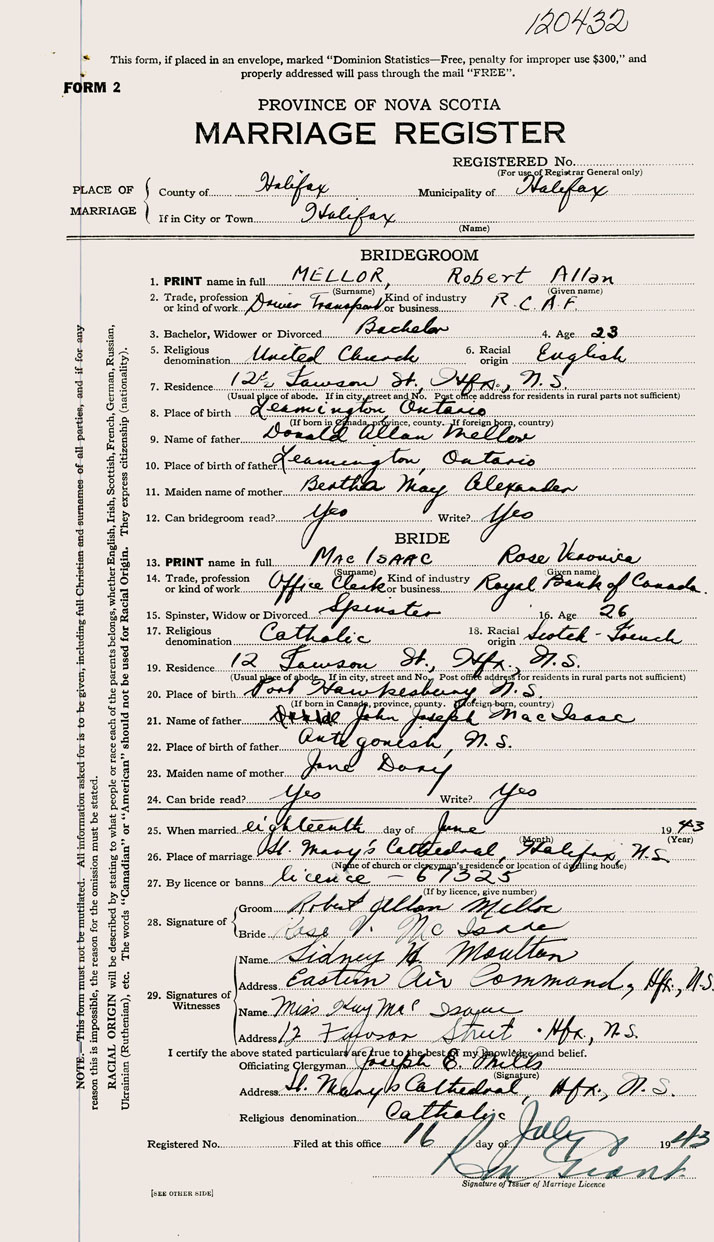 120432
This form, if placed in an envelope, marked "Dominion Statistics—Free, penalty for improper use $300," and
properly addressed will pass through the mail "FREE".
FORM 2
PROVINCE OF NOVA SCOTIA
MARRIAGE REGISTER
REGISTERED No.
(For use of Registrar General only)
PLACE OF MARRIAGE
County of Halifax Municipality of Halifax
If in City or Town Halifax
(Name)
BRIDEGROOM
1. PRINT name in full MELLOR, Robert Allan
(Surname) (Given name)
2. Trade, profession or kind of work Driver Transport Kind of industry or business R.C.A.F.
3. Bachelor, Widower or Divorced Bachelor 4. Age 23
5. Religious denomination United Church 6. Racial origin English
7. Residence 12½ Fawson St., Hfx., N.S.
(Usual place of abode. If in city, street and No. Post office address for residents in rural parts not sufficient)
8. Place of birth Leamington, Ontario
(If born in Canada, province, county. If foreign born, country)
9. Name of father Donald Allan Mellor
10. Place of birth of father Leamington, Ontario
11. Maiden name of mother Bertha May Alexander
12. Can bridegroom read? Yes Write? Yes
BRIDE
13. PRINT name in full Mac Isaac Rose Veronica
(Surname) (Given name)
14. Trade, profession or kind of work Office Clerk Kind of industry or business Royal Bank of Canada.
15. Spinster, Widow or Divorced Spinster 16. Age 26
17. Religious denomination Catholic 18. Racial origin Scotch-French
19. Residence 12 Fawson St., Hfx., N.S.
(Usual place of abode. If in city, street and No. Post office address for residents in rural parts not sufficient)
20. Place of birth Port Hawkesbury N.S.
(If born in Canada, province, county. If foreign born, country)
21. Name of father John Joseph MacIsaac
22. Place of birth of father Antigonish, N.S.
23. Maiden name of mother Jane
24. Can bride read? Yes Write? Yes
25. When married eighteenth day of June 1943
(Month) (Year)
26. Place of marriage St. Mary's Cathedral, Halifax, N.S.
(Name of church or clergyman's residence or location of dwelling house)
27. By licence or banns licence - 67325
(If by licence, give number)
28. Signature of
Groom Robert Allan Mellor
Bride Rose V. Mc Isaac
29. Signatures of Witnesses
Name Sidney H. Moulton
Address Eastern Air Command, Hfx., N.S.
Name Miss Kay Mac Isaac
Address 12 Fawson Street. Hfx., N.S.
I certify the above stated particulars are true to the best of my knowledge and belief.
Officiating Clergyman Joseph E. Mills
(Signature)
Address St. Mary's Cathedral, Hfx., N.S.
Religious denomination Catholic
Registered No. Filed at this office 16 day of July 1943
Signature of Issuer of Marriage Licence
[SEE OTHER SIDE]
NOTE.—This form must not be mutilated. All information asked for is to be given, including full Christian and surnames of all parties, and if for any
reason this is impossible, the reason for the omission must be stated.
RACIAL ORIGIN will be described by stating to what people or race each of the parents belongs, whether English, Irish, Scottish, French, German, Russian,
Ukrainian (Ruthenian), etc. The words "Canadian" or "American" should not be used for Racial Origin. They express citizenship (nationality).